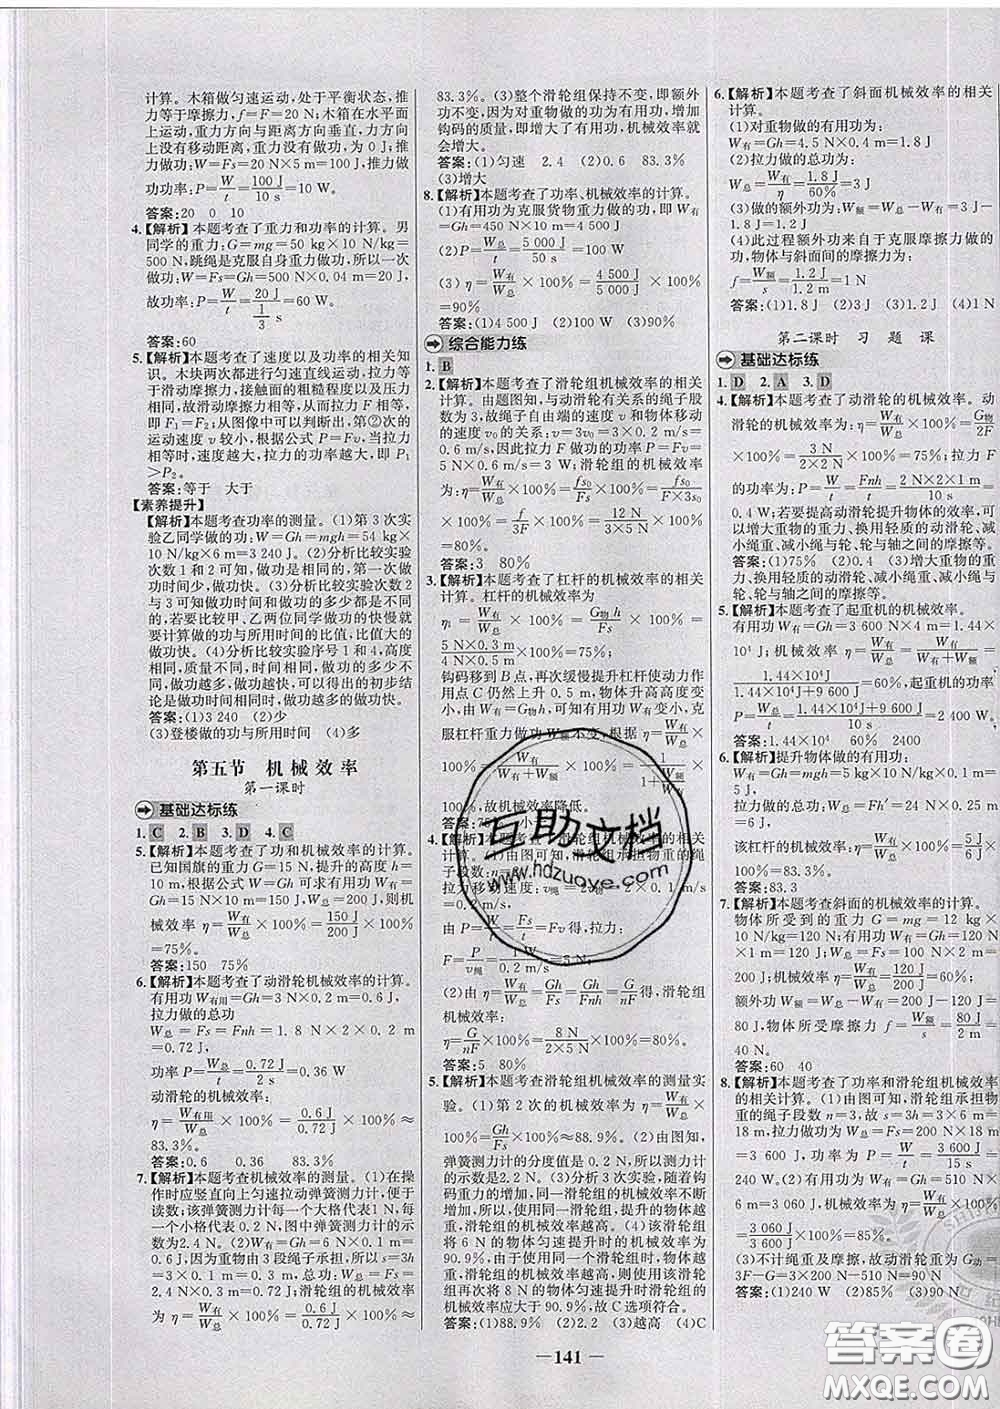 计算。木箱做匀速运动,处于平衡状态,推
力等于摩擦力,f=F=20 N;木箱在水平面
上运动,重力方向与距离方向垂直,力方向
没有移动距离,重力没有做功,为 0 J;推力
做功:W=Fs=20 N×5 m=100 J,推力做
功功率:P=W/t=100 J/10 s=10 W。
答案:20 0 10
4.【解析】本题考查了重力和功率的计算。男
同学的重力:G=mg=50 kg×10 N/kg=
500 N,跳绳是克服自身重力做功,所以一次
做功:W=Fs=Gh=500 N×0.04 m=20 J,
故功率:P=W/t=20 J/(1/3 s)=60 W。
答案:60
5.【解析】本题考查了速度以及功率的相关知
识。木块两次都进行匀速直线运动,拉力等
于滑动摩擦力,接触面的粗糙程度以及压力
相同,故滑动摩擦力相同,所以拉力 F 相等,
即 F1=F2;从图像中可以判断出,第②次的
运动速度 v 较小,根据公式 P=Fv,当拉力
相等时,速度越大,拉力的功率越大,即 P1
>P2。
答案:等于 大于
【素养提升】
【解析】本题考查功率的测量。(1)第 3 次实
验乙同学做的功:W=Gh=mgh=54 kg×
10 N/kg×6 m=3 240 J。(2)分析比较实验
次数 1 和 2 可知,做功相同时,第一次的做
功时间少,做功快。(3)分析比较实验次数 2 与
3 可知,做功时间和做功的多少都是不同
的,若要比较甲、乙两位同学做功的快慢就
要计算做的功与所用时间的比值,比值大的
做功快。(4)分析比较实验序号 1 和 4,楼层
越高,做功越多,做功越快,可以得出的初步结
论是做功越大的做功越多,故做功快。
答案:(1)3 240 (2)少
(3)登楼做的功与所用时间 (4)多
第五节 机械效率
第一课时
基础达标练
1. C 2. B 3. D 4. C
5.【解析】本题考查了功和机械效率的计算。
已知国旗的重力 G=15 N,提升的高度 h=
10 m,根据公式 W=Gh 可求有用功 W有=
Gh=15 N×10 m=150 J,则机
械效率 η=W有/W总×100%=150 J/200 J×100%
=75%。
答案:150 75%
6.【解析】本题考查了动滑轮机械效率的计算。
有用功 W有用=Gh=3 N×0.2 m=0.6 J,
拉力做的总功
W总=Fs=Fnh=1.8 N×2×0.2 m=
0.72 J,
拉力的功率:P=W总/t=0.72 J/2 s=0.36 W;
动滑轮的机械效率:
η=W有用/W总×100%=0.6 J/0.72 J×100%≈
83.3%。
答案:0.6 0.36 83.3%
7.【解析】本题考查机械效率的测量。(1)在操
作时应竖直向上匀速拉动弹簧测力计,便于
读数;该弹簧测力计每一个大格代表1 N,
每一个小格代表 0.2 N,图中弹簧测力计的示
数为2.4 N。(2)有用功:W有=Gh=6 N×0.1 m=
0.6 J,因为重物由 3 段绳子承担,所以 s=3h
=3×0.1 m=0.3 m,总功:W总=Fs=
2.4 N×0.3 m=0.72 J;滑轮组的机械效
率:η=W有/W总×100%=0.6 J/0.72 J×100%≈
83.3%。(3)整个滑轮组保持不变,即额外
功不变,因为对重物做的功为有用功,增加
钩码的质量,即增大了有用功,机械效率就
会增大。
答案:(1)匀速 2.4 (2)0.6 83.3%
(3)增大
8.【解析】本题考查了功率、机械效率的计算。
(1)有用功为克服货物重力做的功,即 W有
=Gh=450 N×10 m=4 500 J
(2)P=W总/t=5 000 J/50 s=100 W
(3)η=W有/W总×100%=4 500 J/5 000 J×100%
=90%
答案:(1)4 500 J (2)100 W (3)90%
综合能力练
1. B
2.【解析】本题考查了滑轮组机械效率的相关
计算。由题图知,与动滑轮有关系的绳子股
数为 3,故绳子自由端的速度 v 和物体移动
的速度 v0 的关系:v=3v0=3×0.2 m/s=
0.6 m/s,因此拉力 F 做功的功率 P=Fv=
5 N×0.6 m/s=3 W;滑轮组的机械效率
为:η=W有/W总×100%=fs0/Fs×100%=fs0/(F×3s0)
×100%=f/3F×100%=12 N/(3×5 N)×100%
=80%。
答案:3 80%
3.【解析】本题考查了杠杆的机械效率的相关
计算。杠杆的机械效率为
η1=W有/W总×100%=G物h/Fs×100%=
(5 N×0.3 m)/(4 N×0.5 m)×100%=75%;
钩码移到 B 点,再次缓慢提升杠杆使动力作
用点 C 仍然上升 0.5 m,物体升高高度变
小,由 W有=G物h,可知有用功 W有变小,克
服杠杆重力做功W额不变,根据 η=W有/W总×
100%=W有/(W有+W额)×100%=1/(1+W额/W有)×
100%,故机械效率降低。
答案:75% 小于
4.【解析】本题考查了滑轮组机械效率的相关
计算。(1)由图可知,滑轮组承担物重的绳
子段数:n=2,
拉力移动速度:v绳=2v物=2×0.1 m/s=
0.2 m/s,
由 P=W/t=Fs/t=Fv得,拉力:
F=P/v绳=1 W/0.2 m/s=5 N;
(2)由 η=W有/W总=Gh/Fs=Gh/Fnh=G/nF得,滑轮组
机械效率:
η=G/nF×100%=8 N/(2×5 N)×100%=80%。
答案:5 80%
5.【解析】本题考查滑轮组机械效率的测量实
验。(1)第 2 次的机械效率为 η=W有/W总×
100%=Gh/Fs×100%≈88.9%。(2)由图知,
弹簧测力计的分度值是 0.2 N,所以测力计
的示数是2.2 N。(3)分析3 次实验,随着钩
码重力的增加,同一滑轮组的机械效率不断
增加,所以使用同一滑轮组提升的物体越
重,滑轮组的机械效率越高。(4)该滑轮组
将 6 N 的物体匀速提升时的机械效率为
90.9%,由于使用同一个滑轮组时,物体越
重,滑轮组的机械效率越高,则用该滑轮组
再将 8 N 的物体匀速提升时,滑轮组的机
械效率应大于 90.9%,故 C 选项符合。
答案:(1)88.9% (2)2.2 (3)越高 (4)C
6.【解析】本题考查了斜面机械效率的相关
计算。
(1)对重物做的有用功为:
W有=Gh=4.5 N×0.4 m=1.8 J
(2)拉力做的总功为:
W总=W有/η=1.8 J/60%=3 J
(3)做的额外功为:W额=W总-W有=3 J-
1.8 J=1.2 J
(4)此过程额外功来自于克服摩擦力做的
功,物体与斜面间的摩擦力为:
f=W额/s=1.2 J/1.2 m=1 N
答案:(1)1.8 J (2)3 J (3)1.2 J (4)1 N
第二课时 习题课
基础达标练
1. D 2. A 3. D
4.【解析】本题考查了动滑轮的机械效率。动
滑轮的机械效率为:η=W有/W总×100%=G物/2F
×100%=3 N/(2×2 N)×100%=75%;拉力 F
的功率为:P=W总/t=Fnh/t=(2 N×2×1 m)/10 s=
0.4 W;若要提高动滑轮提升物体的效率,可
以增大重物的重力、换用轻质的动滑轮减小
绳重、减小绳与轮、轮与轴之间的摩擦等。
答案:(1)75% (2)0.4 (3)增大重物的重
力、换用轻质的动滑轮、减小绳重、减小绳与
轮、轮与轴之间的摩擦等
5.【解析】本题考查了起重机的机械效率。
有用功 W有=Gh=3 600 N×4 m=1.44×
10⁴ J;机械效率 η=W有/W总×100%=
1.44×10⁴ J/(1.44×10⁴ J+9 600 J)=60%,起重机的功率
P=W总/t=(1.44×10⁴ J+9 600 J)/10 s=2 400 W。
答案:1.44×10⁴ 60% 2 400
6.【解析】提升物体做的有用功:
W有=Gh=mgh=5 kg×10 N/kg×0.1 m
=5 J,
拉力做的总功:W总=Fh′=24 N×0.25 m=
6 J,
该杠杆的机械效率:η=W有/W总×100%=5 J/6 J×
100%≈83.3%。
答案:83.3
7.【解析】本题考查斜面的机械效率的计算。
物体所受到的重力 G=mg=12 kg×
10 N/kg=120 N,有用功 W有=Gh=120 N×
1 m=120 J,总功 W总=Fs=100 N×2 m=
200 J;机械效率 η=W有/W总=120 J/200 J=60%;
额外功 W额=W总-W有=200 J-120 J=
80 J,物体所受摩擦力 f=W额/s=80 J/2 m=
40 N。
答案:60 40
8.【解析】本题考查了功率和滑轮组机械效率
的相关计算。(1)由图知,滑轮组承担物
重的绳子段数 n=3,故:s=3h=3×6 m=
18 m,拉力做功 W总=Fs=200 N×18 m
=3 600 J,功率为 P=W总/t=3 600 J/15 s=
240 W。(2)有用功为:W有=Gh=510 N×
6 m=3 060 J,机械效率为 η=W有/W总×100%=
3 060 J/3 600 J×100%=85%。
(3)不计绳重及摩擦,故动滑轮重为 G动
=3F-G=3×200 N-510 N=90 N
答案:(1)240 W (2)85% (3)90 N
— 141 —
互助文档
www.hdzuoye.com
答案圈
MXQE.COM